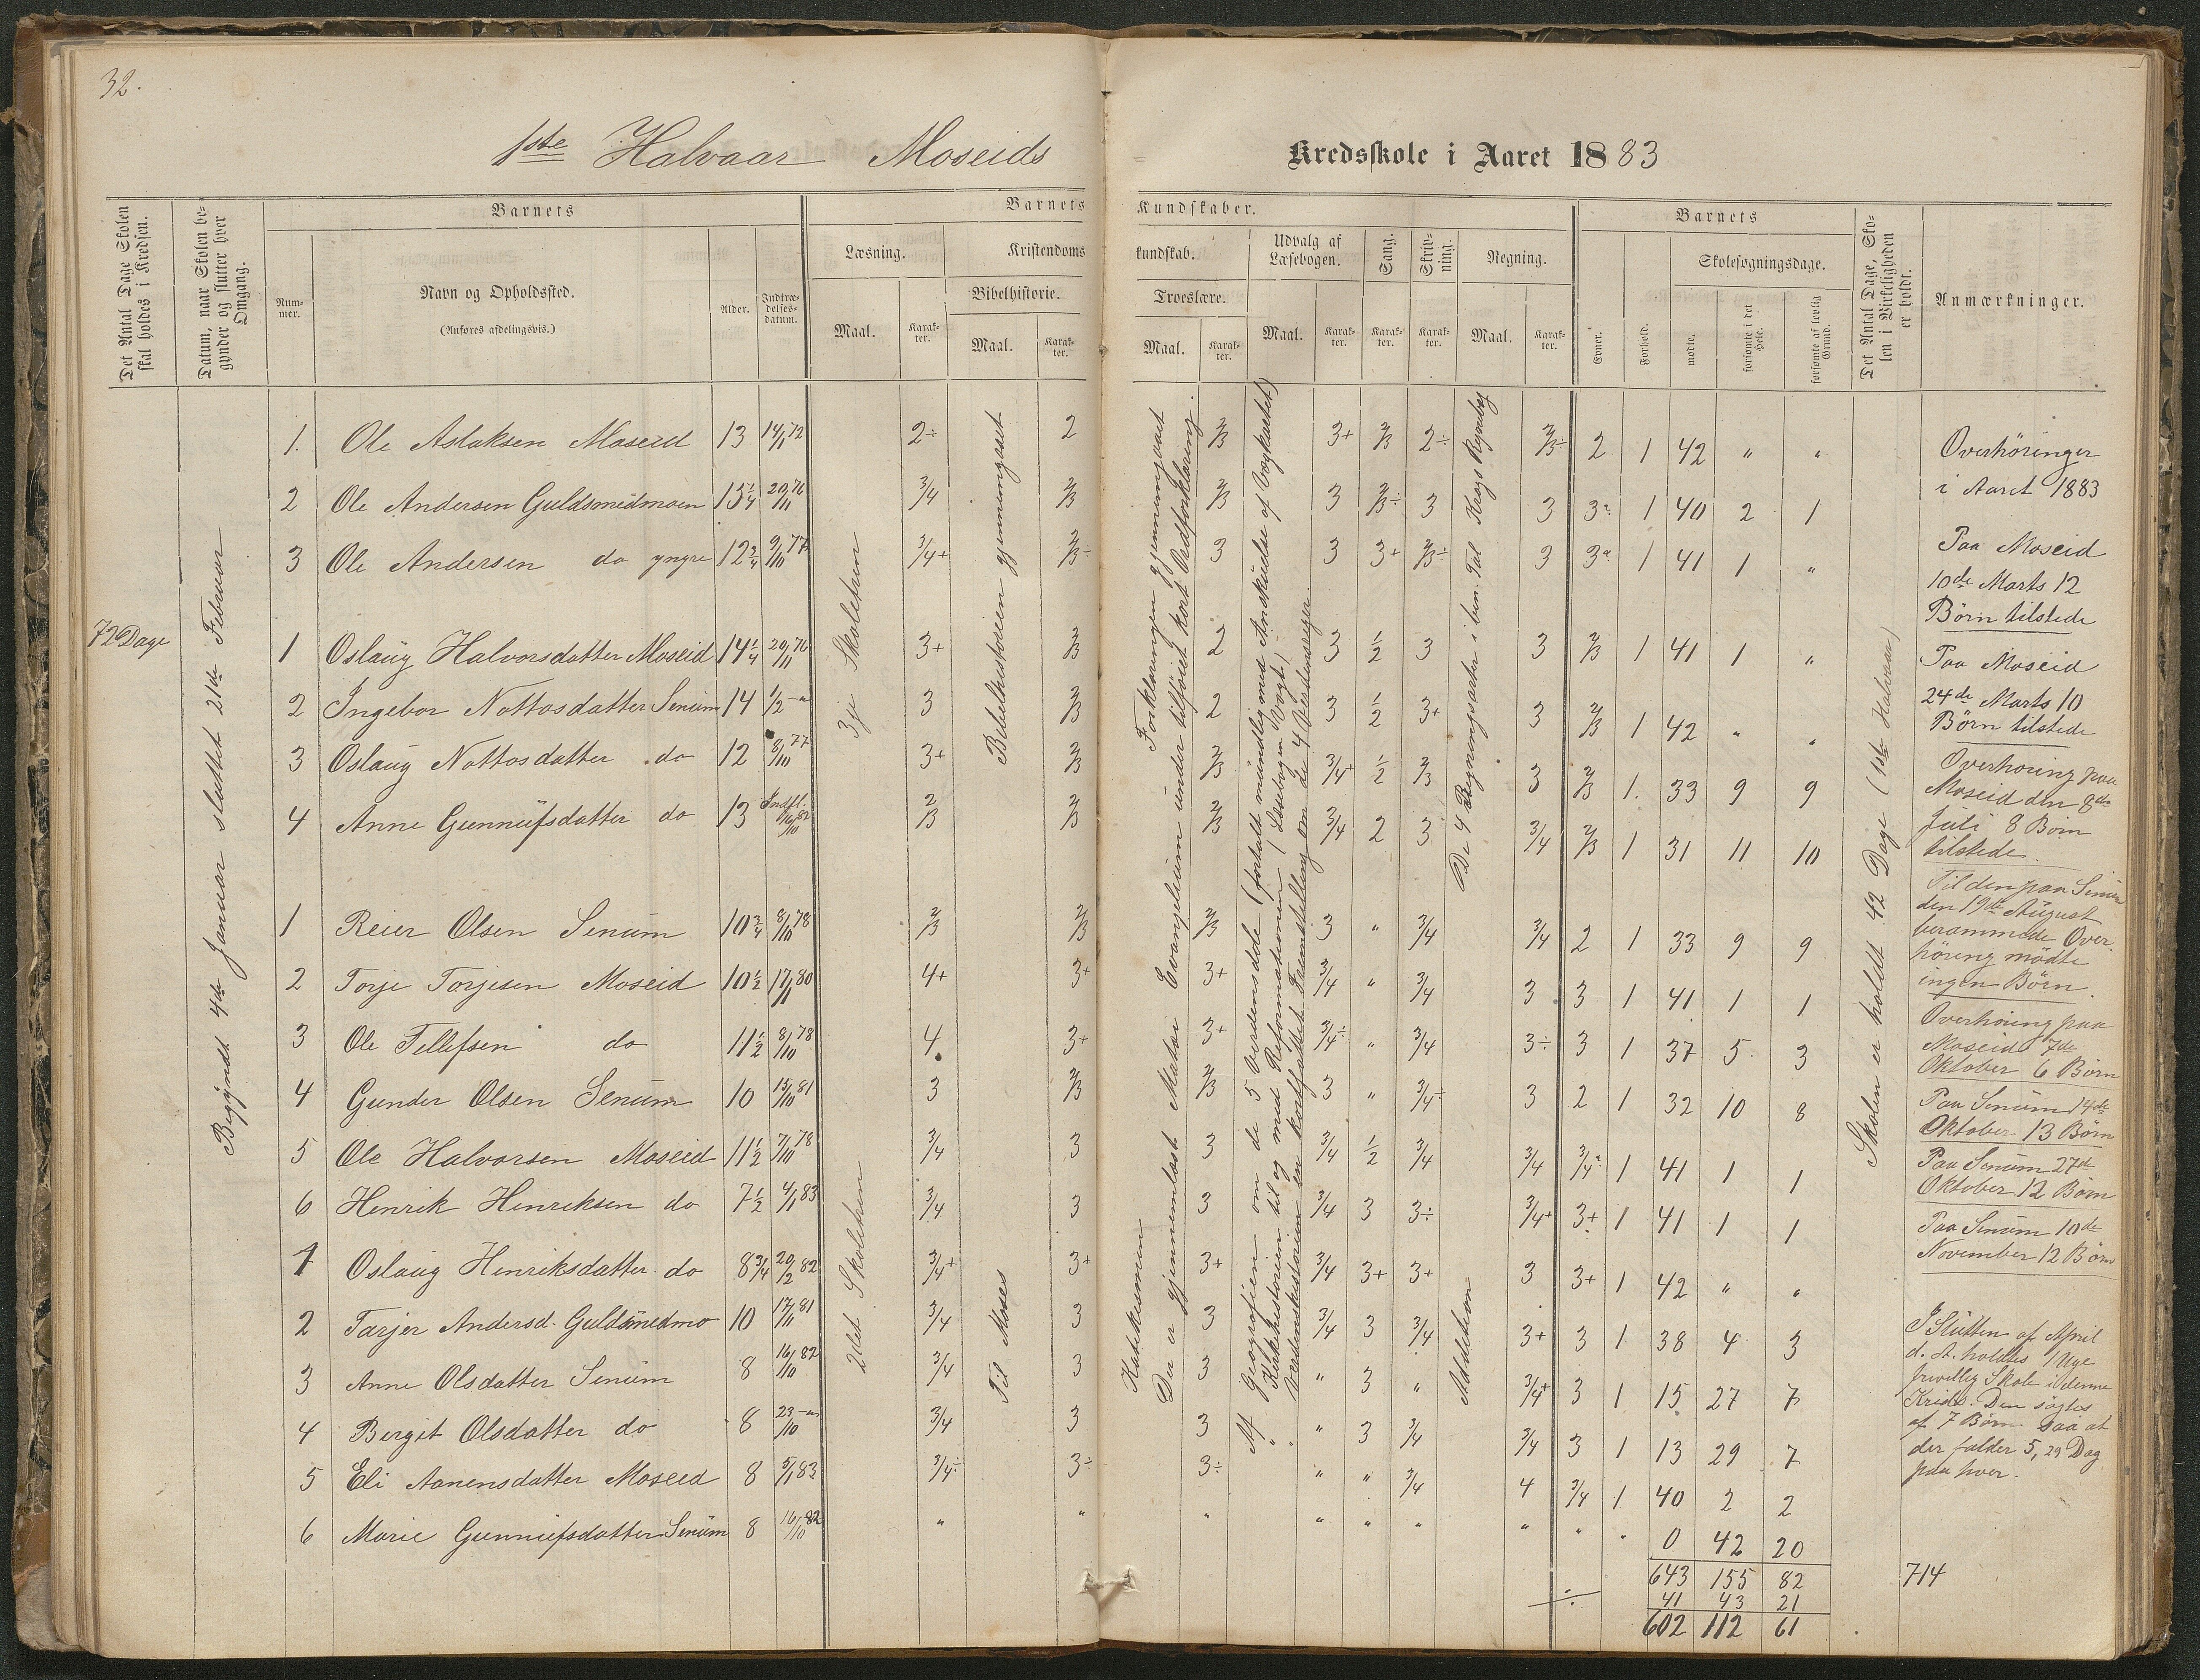 32.
1ste Halvaar Moseids
Kredsskole i Aaret 1883
Det Antal Dage Skolen skal holdes i Kredsen.
Datum, naar Skolen begynder og slutter hver Omgang.
Barnets
Nummer.
Navn og Opholdssted.
(Anføres afdelingsvis.)
Alder.
Indtrædelsesdatum.
Barnets Kundskaber.
Læsning.
Maal.
Karakter.
Kristendomskundskab.
Bibelhistorie.
Maal.
Karakter.
Troeslære.
Maal.
Karakter.
Udvalg af Læsebogen.
Maal.
Karakter.
Sang.
Karakter.
Skrivning.
Karakter.
Regning.
Maal.
Karakter.
Barnets
Evner.
Forhold.
Skolesøgningsdage.
mødte.
forsømte i det Hele.
forsømte af lovlig Grund.
Det Antal Dage, Skolen i Virkeligheden er holdt.
Anmærkninger.
72 Dage
Begyndt 4de Januar sluttet 21de Februar
3je Skoletrin
2det Skoletrin
Bibelhistorien gjennemgaaet
Til Moses
Forklaringen gjennemgaaet
Der er gjennemlæst Matæi Evangelium under tilføiet kort Ordforklaring.
Katekismen
Af Geografien om de 5 Verdensdele (fortalt mundlig med Anskuelse af Vægkartet)
" Kirkehistorien til og med Reformationen (Læsebogen Vogt)
" Verdenshistorien en kortfattet Fremstilling om de 4 Verdensriger.
De 4 Regningsarter i ben. Tal Krags Regnebog
Addition
Skolen er holdt 42 Dage (1ste Halvaar)
1. Ole Aslaksen Moseid 13 14/1 72 2÷ 2 2/3 3+ 2/3 2÷ 2/3÷ 2 1 42 " "
2 Ole Andersen Guldsmedmoen 15 1/4 20/11 76 3/4 2/3 2/3 3 2/3÷ 3 3 3 1 40 2 1
3 Ole Andersen do yngre 12 3/4 9/10 77 3/4+ 2/3÷ 3 3 3+ 2/3÷ 3 3 1 41 1 "
1 Oslaug Halvorsdatter Moseid 14 1/4 20/11 76 3+ 2/3 2 3 1/2 3 3 2/3 1 41 1 "
2 Ingebor Nottosdatter Senum 14 1/2 " 3 2/3 2 3 1/2 3+ 3 2/3 1 42 " "
3 Oslaug Nottosdatter do 12 8/10 77 3+ 2/3 2/3 3/4+ 1/2 2/3 3 2/3 1. 33 9 9
4 Anne Gunnufsdatter do 13 Indfl. 16/10 82 2/3 2/3 2/3 3/4 2 3 3/4 2/3 1 31 11 10
1 Reier Olsen Senum 10 3/4 8/10 78 2/3 2/3 2/3 3 " 3/4 3/4 2 1 33 9 9
2 Torje Torjesen Moseid 10 1/2 17/11 80 4+ 3+ 3+ 3/4 " 3/4 3 3 1 41 1 1
3 Ole Tellefsen do 11 1/2 8/10 78 4 3+ 3+ 3/4÷ " 3/4 3÷ 3 1 37 5 3
4 Gunder Olsen Senum 10 15/10 81 3 2/3 2/3 3 " 3/4÷ 3 2 1 32 10 8
5 Ole Halvorsen Moseid 11 1/2 7/10 78 3/4 3 3 3/4 1/2 3/4 3/4 3/4 1 41 1 1
6 Henrik Henriksen do 7 1/2 4/1 83 3/4 3 3 3/4 3 3÷ 3/4+ 3+ 1 41 1 1
1 Oslaug Henriksdatter do 8 3/4 20/2 82 3/4+ 3+ 3+ 3/4 3+ 3+ 3 3+ 1 42 " "
2 Tarjer Andersd. Guldsmedmo 10 17/11 81 3/4 3 3 3/4 3 3/4 3+ 3 1 38 4 3
3 Anne Olsdatter Senum 8 16/10 82 3/4 3 3 " 3 " 3/4+ 3 1 15 27 7
4 Bergit Olsdatter do 8 23/10 " 3/4 3 3 " 3 3/4 3/4 3 1 13 29 7
5 Eli Aanensdatter Moseid 8 5/1 83 3/4÷ 3÷ 3÷ " " 3/4 4 3/4 1 40 2 2
6 Marie Gunnufsdatter Senum 8 16/10 82 " " " " " " " " " 0 42 20
643 155 82
÷ 41 43 21
602 112 61
Overhøringer
i Aaret 1883
Paa Moseid
10de Marts 12
Børn tilstede
Paa Moseid
24de Marts 10
Børn tilstede
Overhøring paa
Moseid den 8de
Juli 8 Børn
tilstede.
Til den paa Senum
den 19de August
berammede Over-
høring mødte
ingen Børn.
Overhøring paa
Moseid 7de
Oktober 6 Børn
Paa Senum 14de
Oktober 13 Børn
Paa Senum 27de
Oktober 12 Børn
Paa Senum 10de
November 12 Børn
I Slutten af April
d. A. holdtes 1 Uge
frivillig Skole i denne
Kreds. Den søgtes
af 7 Børn saa at
der falder 5,29 Dag
paa hver.
714